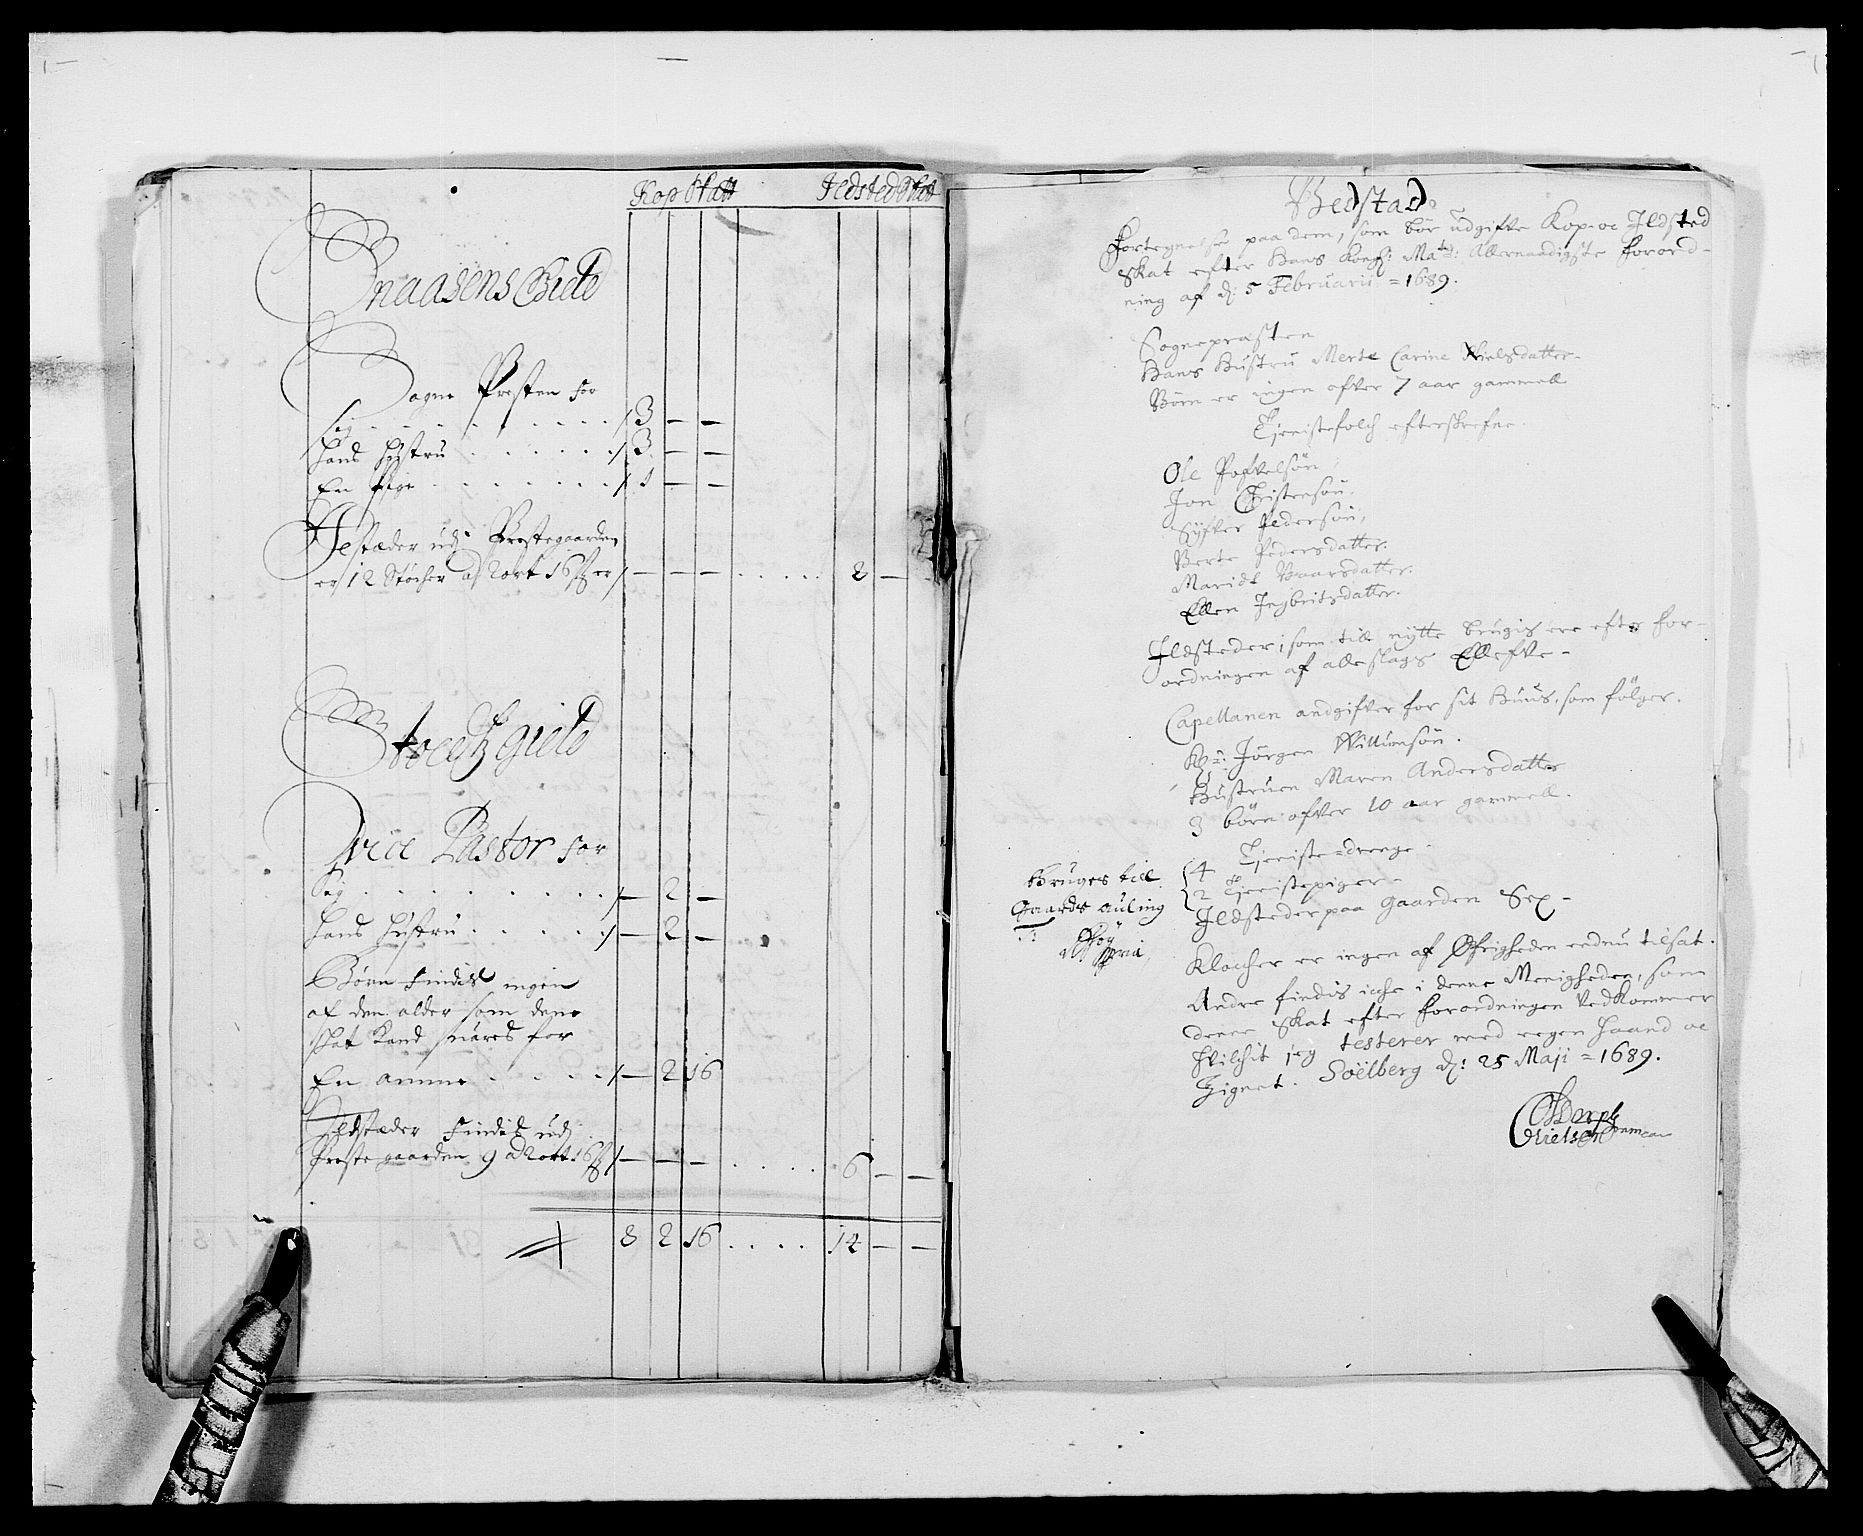 Kop Skatt Ildsted Skatt
Snaasens Gield
Sogne Presten for
sig . . . . . . . . . / 3 — —
hans hustru . . . . . . / 3 — —
En Pige . . . . . . . / 1 — —
Ildstæder udj Prestegaarden
er 12 Støcher à 2 ort 16 ß er / — — — . . . . . 8 — —
Stoeds gield
Vice Pastor for
Sig . . . . . . . . . / — 2 —
hans hustru . . . . . / — 2 —
Børn findis ingen
af den alder som denne
skat kand suares for
En amme . . . . . / — 2 16
Ildstæder findis udj
Preste gaarden 9 à 2 ort 16 ß / — — — . . . . . 6 — —
8 2 16 . . . . 14 — —
Bedstad.
Fortegnelse paa dem, som bør udgifve Kop- oc Ildsted
Skat efter Hans Kongl: Mats: Allernaadigste Forord-
ning af d: 5 Februarii = 1689.
Sognepræsten
Hans Hustru Merte Carine Nielsdatter.
Børn er ingen ofver 7 aar gammell
Tjenistefolch efterskrefne.
Ole Pofvelsøn,
Jon Christensøn,
Syfver Pedersøn,
Berte Pedersdatter.
Maridt Baarsdatter.
Ellen Ingbritsdatter.
Ildsteder, som till nytte brugis ere efter For-
ordningen af alle slags Ellefve -
Capellanen andgifver for sit Huus, som følger.
Hr: Jørgen Willumsøn.
Hustruen Maren Andersdatter
3 børn ofver 10 aar gammell.
4 Tjeniste-drenge.
Bruges till 2 Tjenistepiger -
Gaards auling
Ildsteder paa gaarden Sex -
Klocher er ingen af Øfrigheden endnu tilsat.
Andre findis iche i denne Menigheden, som
denne Skat efter Forordningen vedkommer
Hvilchit jeg testerer med eegen Haand oc
Zignet. Soelberg d: 25 Maji = 1689.
Nielsen